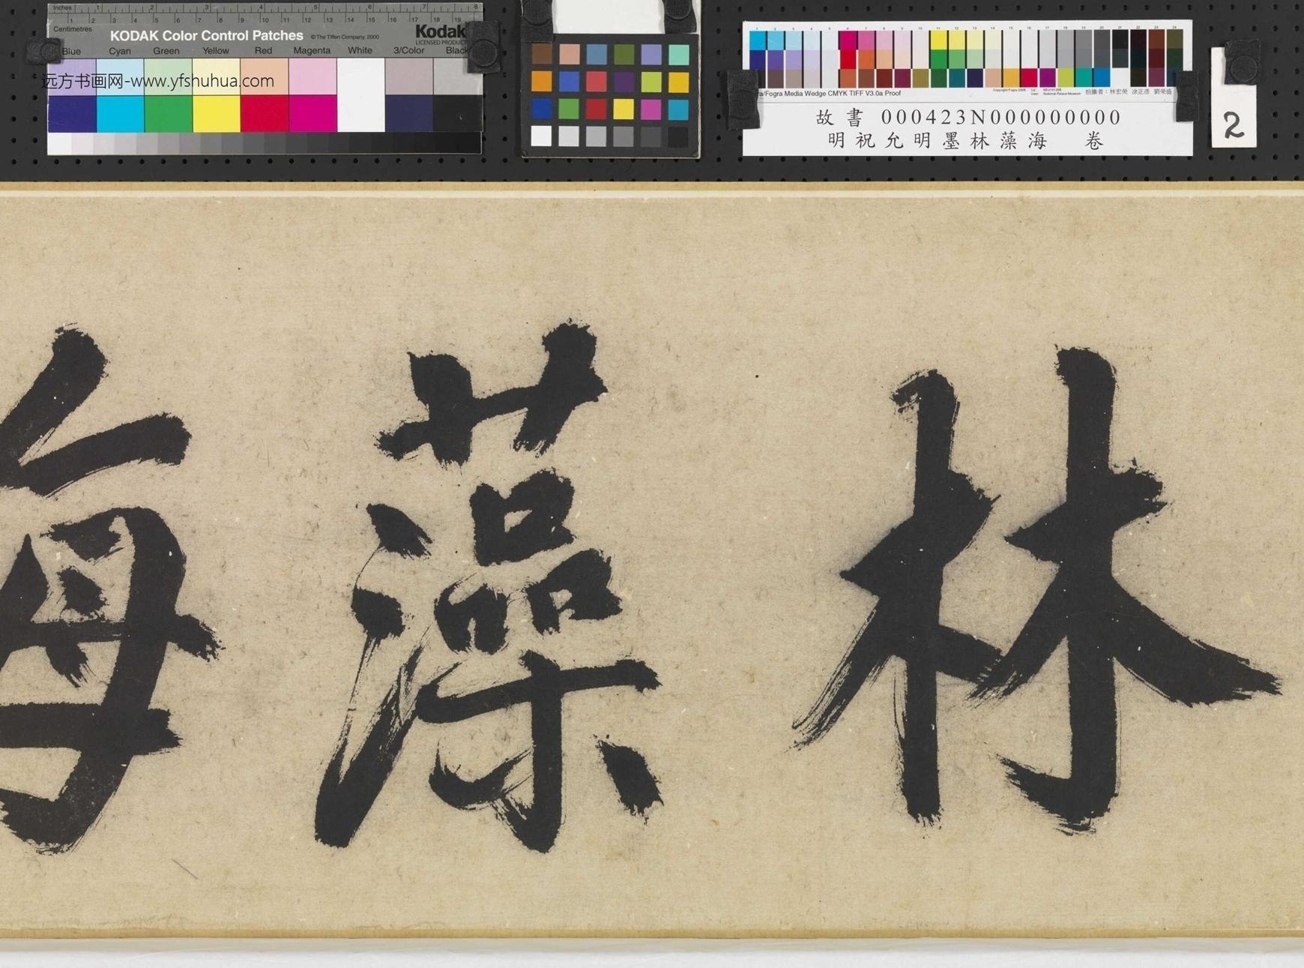 Inches 1 2 3 4 5 6 7 8
Centimetres 1 2 3 4 5 6 7 8 9 10 11 12 13 14 15 16 17 18 19
KODAK Color Control Patches © The Tiffen Company, 2000 Kodak
LICENSED PRODUCT
Blue Cyan Green Yellow Red Magenta White 3/Color Black
远方书画网-www.yfshuhua.com
a/Fogra Media Wedge CMYK TIFF V3.0a Proof
故書 000423N000000000
明祝允明墨林藻海 卷
2
林藻海